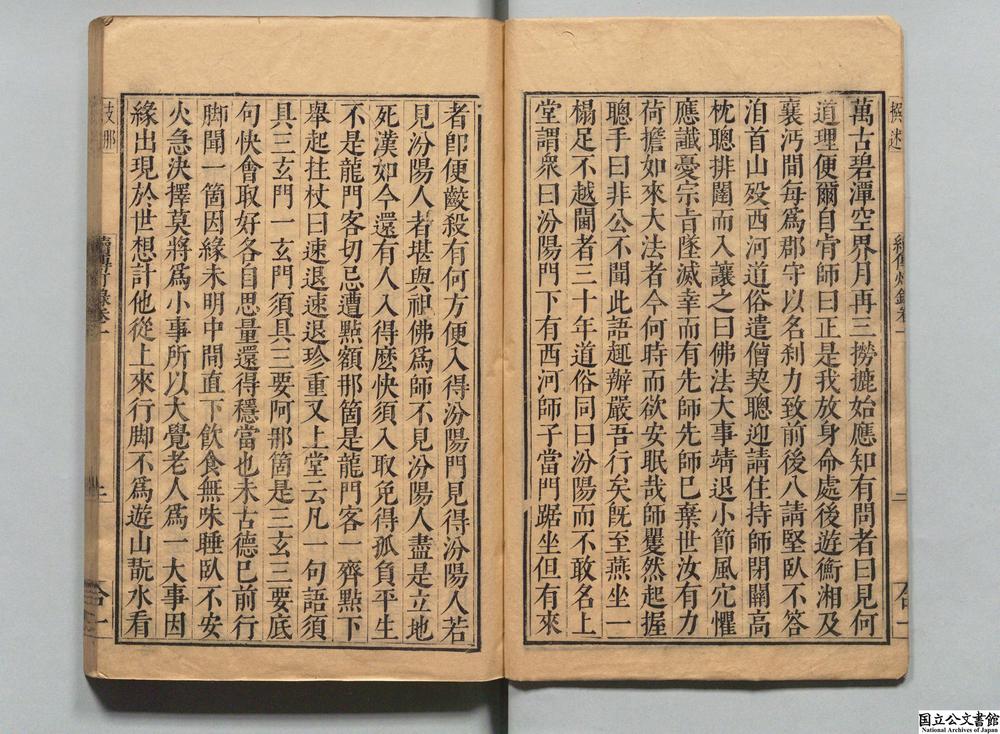 萬古碧潭空界月再三撈摝始應知有問者曰見何
道理便爾自肯師曰正是我放身命處後遊衡湘及
襄沔間每爲郡守以名刹力致前後八請堅臥不答
洎首山歿西河道俗遣僧契聰迎請住持師閉關高
枕聰排闥而入讓之曰佛法大事靖退小節風穴懼
應讖憂宗旨墜滅幸而有先師先師已棄世汝有力
荷擔如來大法者今何時而欲安眠哉師矍然起握
聰手曰非公不聞此語趣辦嚴吾行矣旣至燕坐一
榻足不越閫者三十年道俗同曰汾陽而不敢名上
堂謂衆曰汾陽門下有西河師子當門踞坐但有來
者卽便齩殺有何方便入得汾陽門見得汾陽人若
見汾陽人者堪與祖佛爲師不見汾陽人盡是立地
死漢如今還有人入得麽快須入取免得孤負平生
不是龍門客切忌遭點額那箇是龍門客一齊點下
舉起拄杖曰速退速退珍重又上堂云凡一句語須
具三玄門一玄門須具三要阿那箇是三玄三要底
句快會取好各自思量還得穩當也未古德已前行
脚聞一箇因緣未明中間直下飮食無味睡臥不安
火急決擇莫將爲小事所以大覺老人爲一大事因
緣出現於世想計他從上來行脚不爲遊山翫水看
国立公文書館
National Archives of Japan